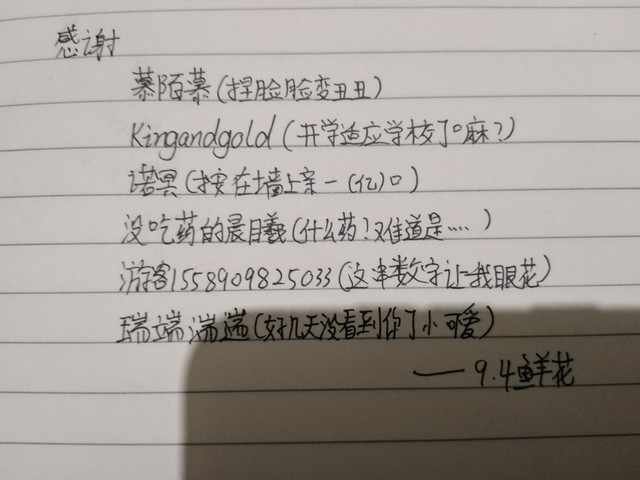 感谢
慕陌慕(捏脸脸变丑丑)
Kingandgold(开学适应学校了口麻?)
诺冥(按在墙上亲一(亿)口)
没吃药的晨曦(什么药?难道是……)
游客1558909825033(这串数字让我眼花)
瑞端湍遄(好几天没看到你了小可爱)
——9.4鲜花